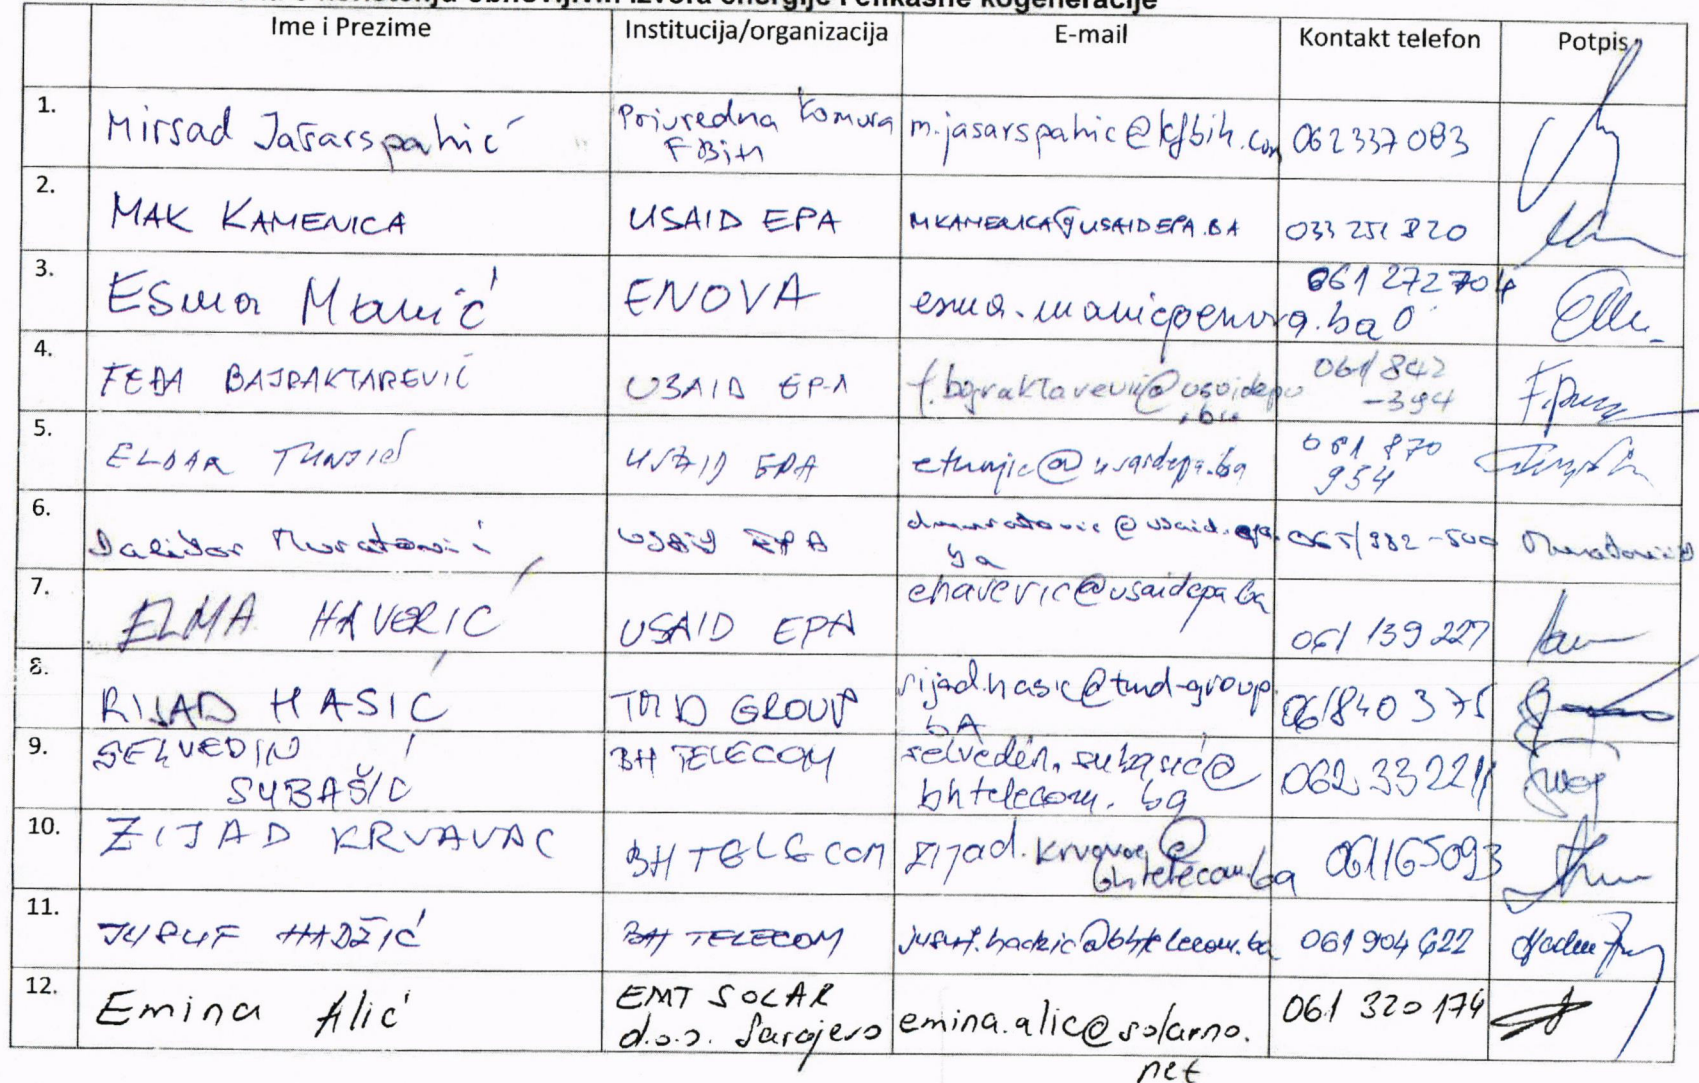 o korištenju obnovljivih izvora energije i efikasne kogeneracije
Ime i Prezime Institucija/organizacija E-mail Kontakt telefon Potpis
1. Mirsad Jašarspahić Privredna Komora FBiH m.jasarspahic@kfbih.com 062 337 083
2. MAK KAMENICA USAID EPA MKAMENICA@USAIDEPA.BA 033 251 820
3. Esma Manić ENOVA esma.manic@enova.ba 061 272 704
4. FEĐA BAJRAKTAREVIĆ USAID EPA f.bajraktarevic@usaidepa.ba 061/842-394
5. ELDAR TUNJIĆ USAID EPA etunjic@usaidepa.ba 061 870 954
6. Dalibor Muratović USAID EPA dmuratovic@usaid.epa.ba 065/982-500
7. ELMA HAVERIĆ USAID EPA ehaveric@usaidepa.ba 061 139 227
8. RIJAD HASIĆ TMD GROUP rijad.hasic@tmd-group.bA 061840 375
9. SELVEDIN SUBAŠIĆ BH TELECOM selvedin.subasic@bhtelecom.ba 062 332211
10. ZIJAD KRVAVAC BH TELECOM zijad.krvavac@bhtelecom.ba 061165093
11. JUSUF HADŽIĆ BH TELECOM jusuf.hadzic@bhtelecom.ba 061 904 622
12. Emina Alić EMT SOLAR d.o.o. Sarajevo emina.alic@solarno.net 061 320 174